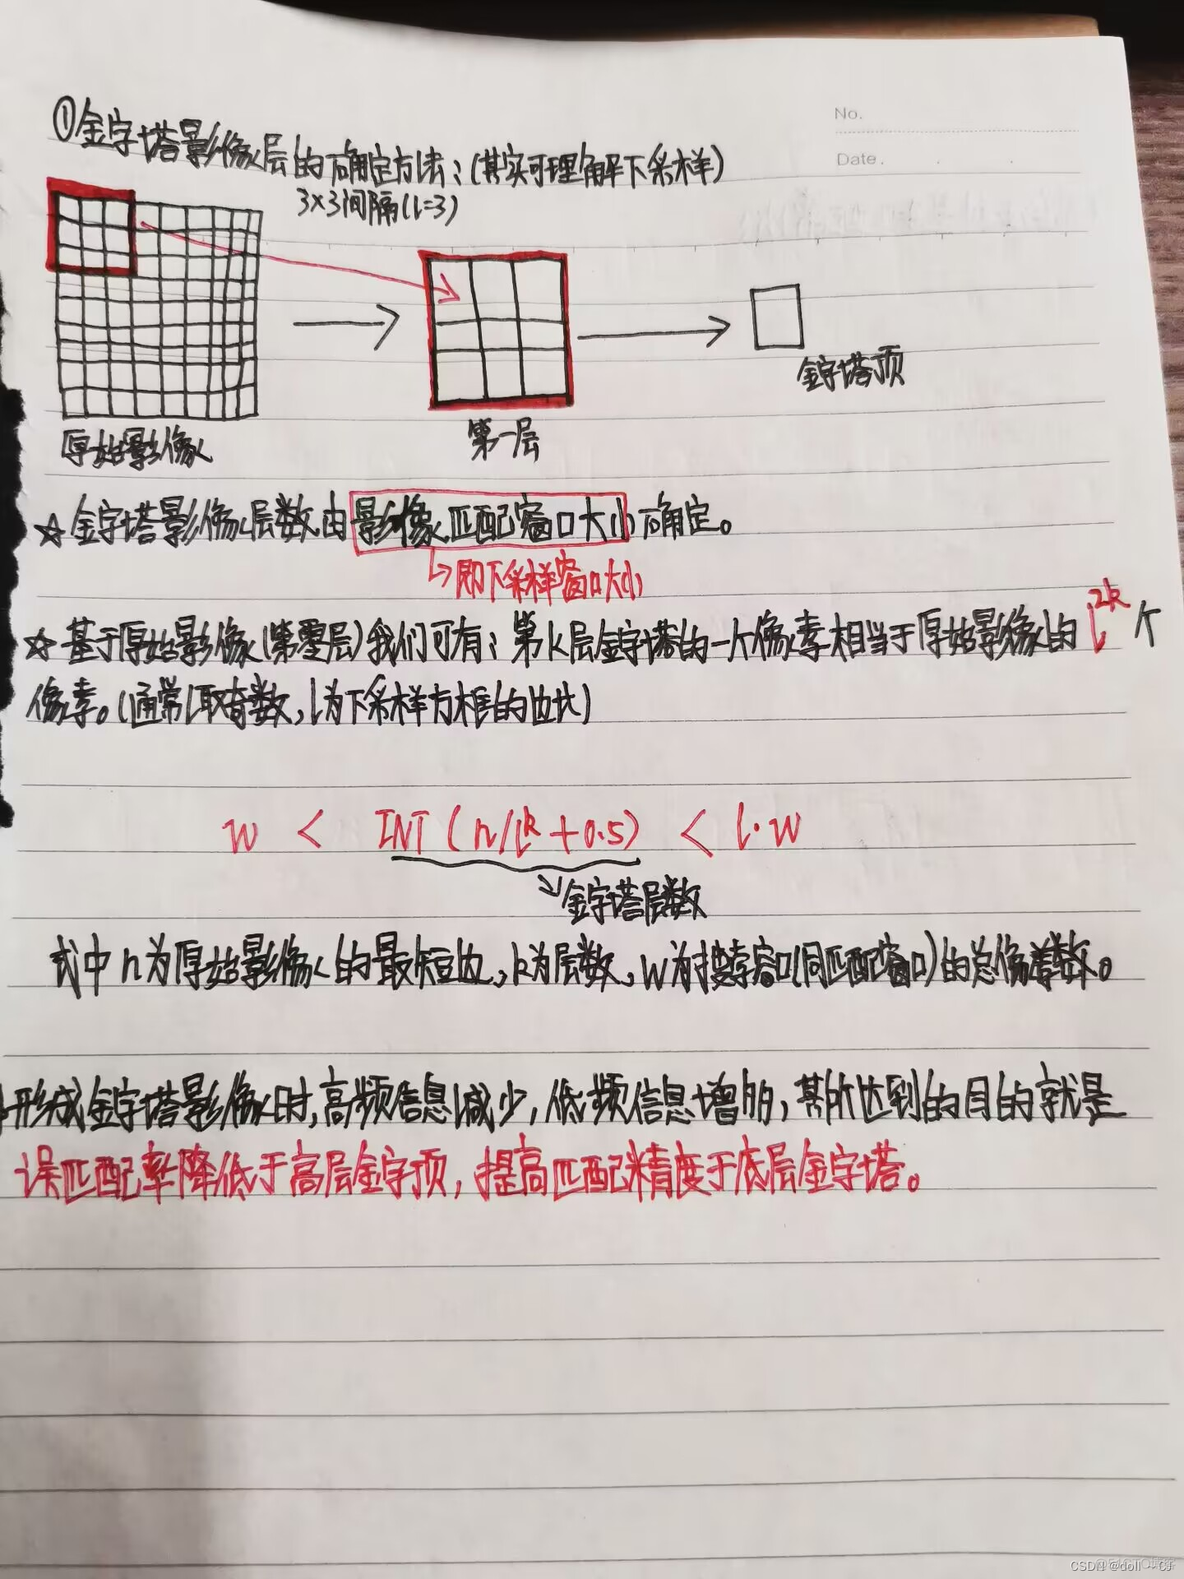 No.
Date.
①金字塔影像层的确定方法：(其实可理解下采样)
3×3间隔(l=3)
原始影像
第一层
金字塔顶
☆金字塔影像层数由影像匹配窗口大小确定。
↳即下采样窗口大小
☆基于原始影像(第零层)我们可有：第k层金字塔的一个像素相当于原始影像的l^2k个
像素。(通常l取奇数,l为下采样方框的边长)
W < INT(n/l^k+0.5) < l·W
金字塔层数
式中n为原始影像的最短边,k为层数,W为搜索窗口(同匹配窗口)的总像素数。
形成金字塔影像时,高频信息减少,低频信息增多,其所达到的目的就是
误匹配率降低于高层金字顶,提高匹配精度于底层金字塔。
CSDN @doll